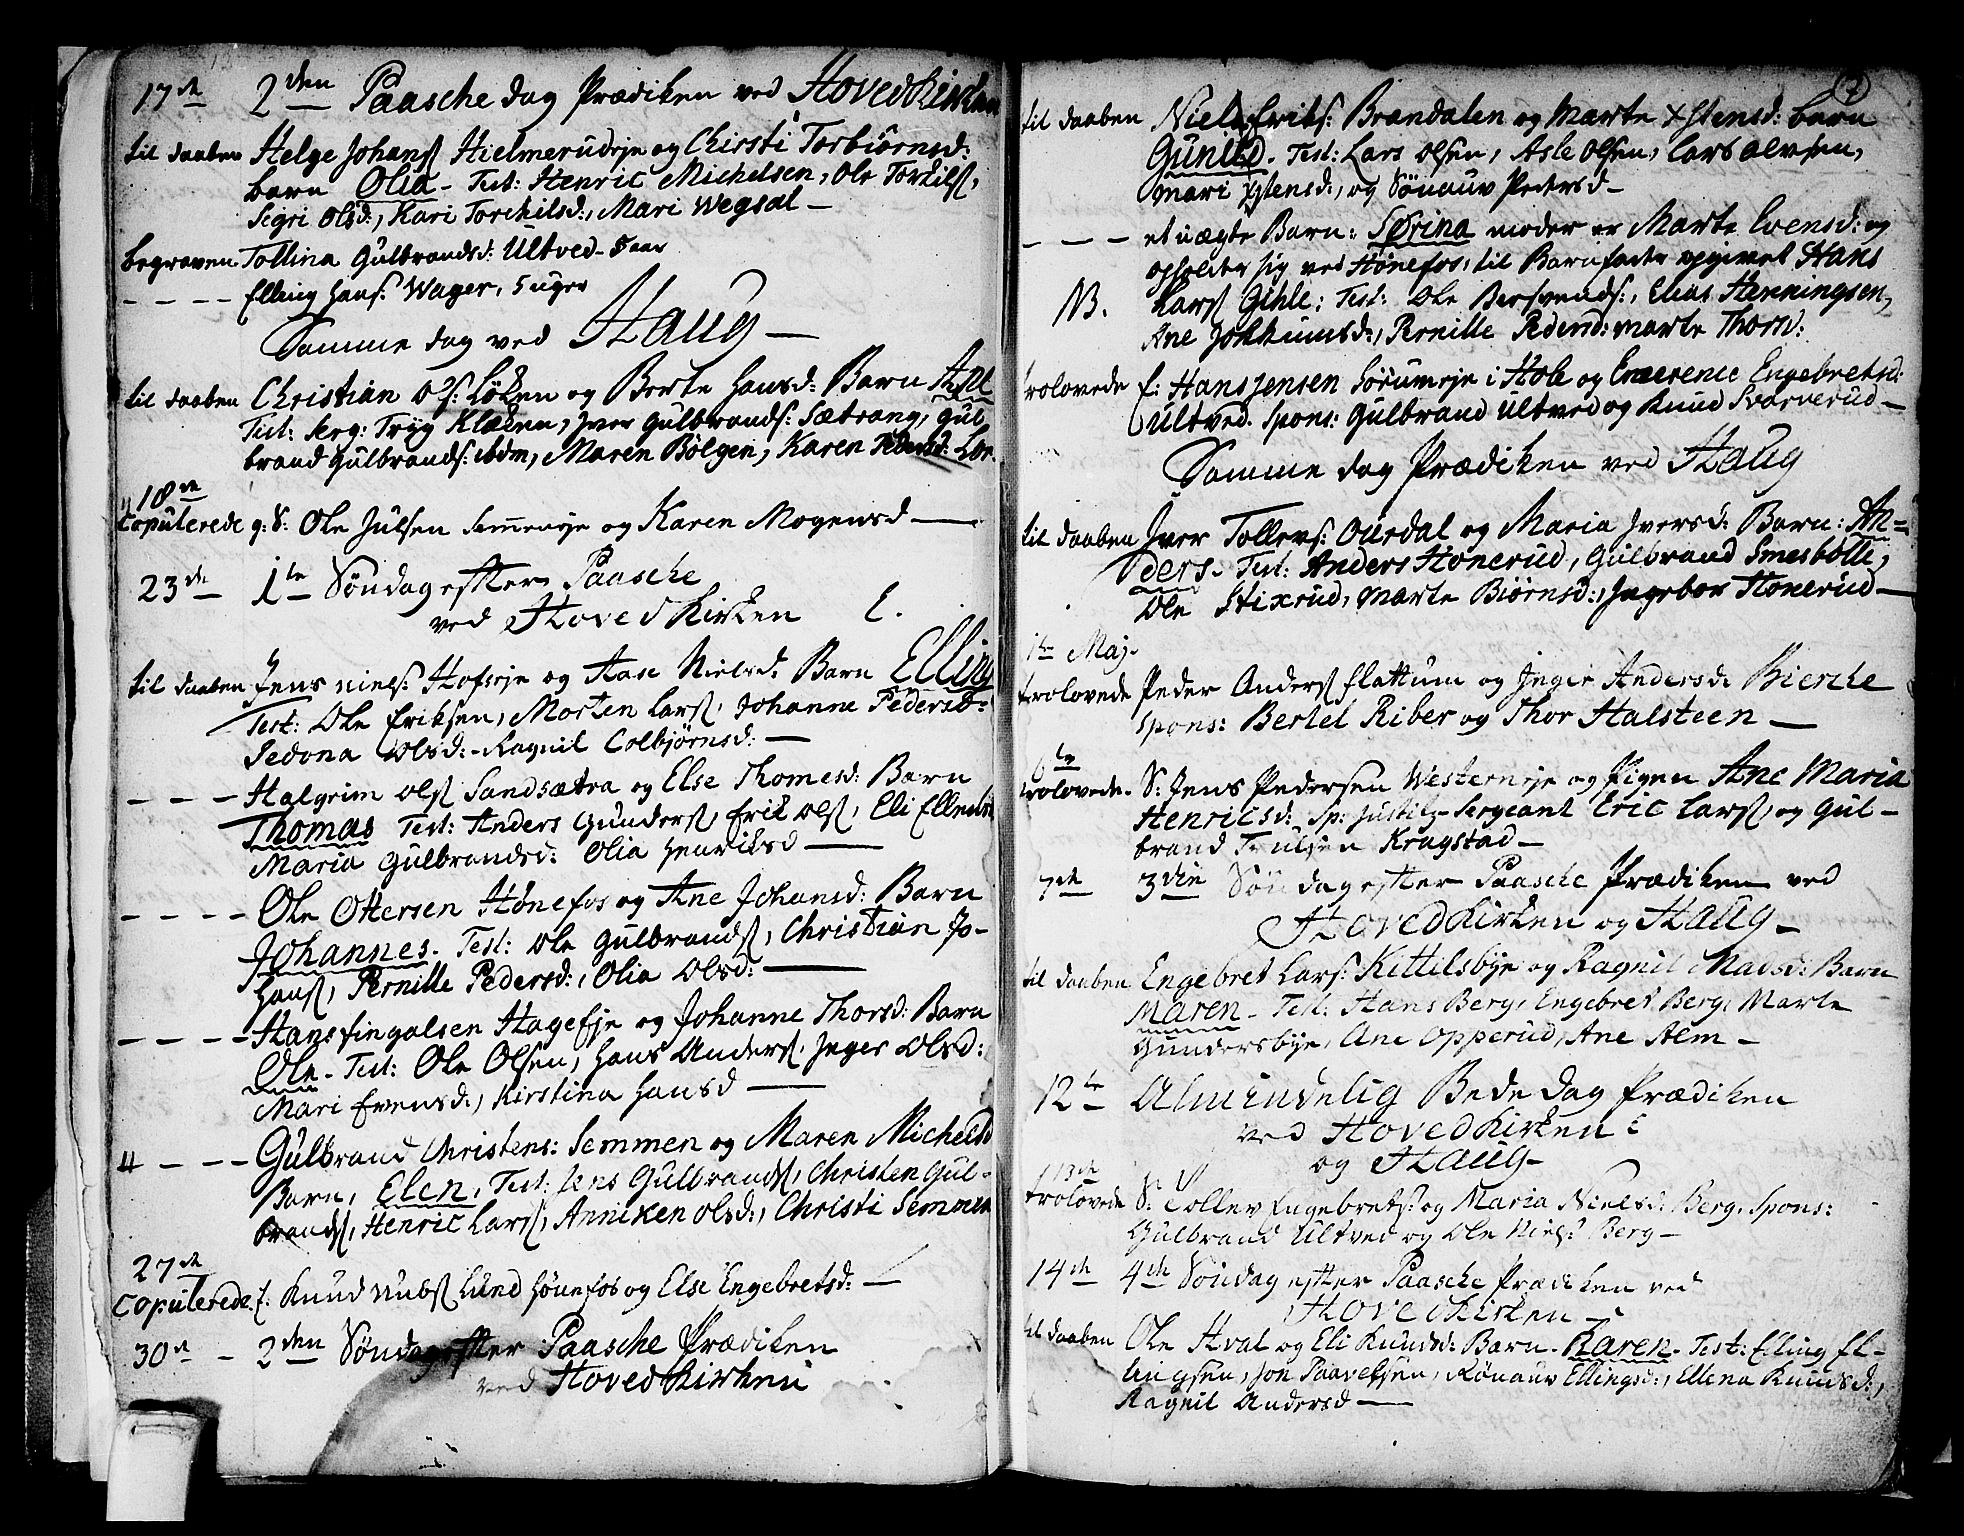 17de 2den Paasche dag Prædiken ved HovedKirken
til daaben Helge Johans Hielmerudeje og Chirsti Torbiørnsd:
barn Olia - Test: Henric Michelsen, Ole Torkils,
Segri Olsd:, Kari Torchilsd:, Mari Wegsal -
begraven Tollina Gulbrandsd: Ultved - 5 aar
- - - - Elling Hans: Wager, 5 uger
Samme dag ved Haug -
til daaben Christian Ols: Løken og Berte Hansd: Barn
Test: Serg: Tryg Klæken, Jver Gulbrands: Sætrang, Gul-
brand Gulbrands: ibdm, Maren Bølgen, Karen
18de
Copulerede g: S: Ole Julsen Semmeneje og Karen Mogensd -
23de 1te Søndag efter Paasche
ved HovedKirken E.
til daaben Jens Niels: Hofseje og Aase Nielsd: Barn Elling
Test: Ole Eriksen, Morten Lars, Johanne Pedersd:
Sedona Olsd: - Ragnil Colbjørnsd: -
- - - Halgrim Ols Sandsætra og Else Thomesd: Barn
Thomas Test: Anders Gunders, Erik Ols, Eli
Maria Gulbrandsd: Olia Henriksd -
- - - - Ole Ottersen Hønefos og Ane Johansd: Barn
Johannes. Test: Ole Gulbrands, Christian Jo-
hans, Pernille Pedersd:, Olia Olsd: -
- - - - Hans Fingalsen Hagefje og Johanne Thorsd: Barn
Ole - Test: Ole Olsen, Hans Anders, Jnger Olsd:
Mari Evensd:, Kirstina Hansd -
- - - Gulbrand Christens: Semmen og Maren Michelsd
Barn, Elen, Test: Jens Gulbrands, Christen Gul-
brands, Henric Lars, Anniken Olsd:, Christi Semmen
27de
Copulerede f. Knud Nubs Lund Hønefos og Else Engebretsd: -
30te - 2den Søndag efter Paasche Prædiken
ved HovedKirken
7
til daaben Niels Eriks: Brændalen og Marte Xstensd: barn
Gunild - Test: Lars Olsen, Asle Olsen, Lars Alvsen,
Mari Xstensd:, og Sønauv Pedersd -
- - - et uægte Barn: Sørina moder er Marte Evensd: og
opholder sig ved Hønefos, til Barnfader opgivet Hans
NB. Lars Gihle: Test: Ole Bersvends:, Elias Henningsen,
Ane Jokkumsd:, Pernille Pedersd: Marte Thorsd:
trolovede f: Hans Jensen Sørumeje i Hole og Emerence Engebretsd:
Ultved. Spons: Gulbrand Ultved og Knud Svarverud -
Samme dag Prædiken ved Haug
til daaben Jver Tollevs: Ouredal og Maria Jversd: Barn: An-
ders. Test: Anders Honerud, Gulbrand Smesbølle,
Ole Stixrud, Marte Biørnsd:, Jngebor Honerud -
1te Maj.
trolovede Peder Anders Flattum og Jnger Andersd: Bierche
Spons: Bertel Riber og Thor Halsteen -
6te
trolovede. S: Jens Pedersen Westerneje og Pigen Ane Maria
Henricsd: Sp: Justitz-Sergeant Eric Lars, og Gul-
brand Trulsen Kragstad -
7de 3die Søndag efter Paasche Prædiken ved
HovedKirken og Haug -
til daaben Engebret Lars: Kittilsbye og Ragnil Madsd: Barn
Maren - Test: Hans Berg, Engebret Berg, Marte
Gundersbye, Ane Opperud, Ane Alm -
12te Almindelig Bededag Prædiken
ved HovedKirken
og Haug -
13de
trolovede S: Tollev Engebrets: og Maria Nielsd: Berg. Spons:
Gulbrand Ultved og Ole Niels: Berg -
14de 4de Søndag efter Paasche Prædiken ved
HovedKirken -
til daaben Ole Hval og Eli Knudsd: Barn - Karen - Test: Elling El-
lingsen, Jon Paavelsen, Rønauv Ellingsd:, Ellena Knudsd:,
Ragnil Andersd -